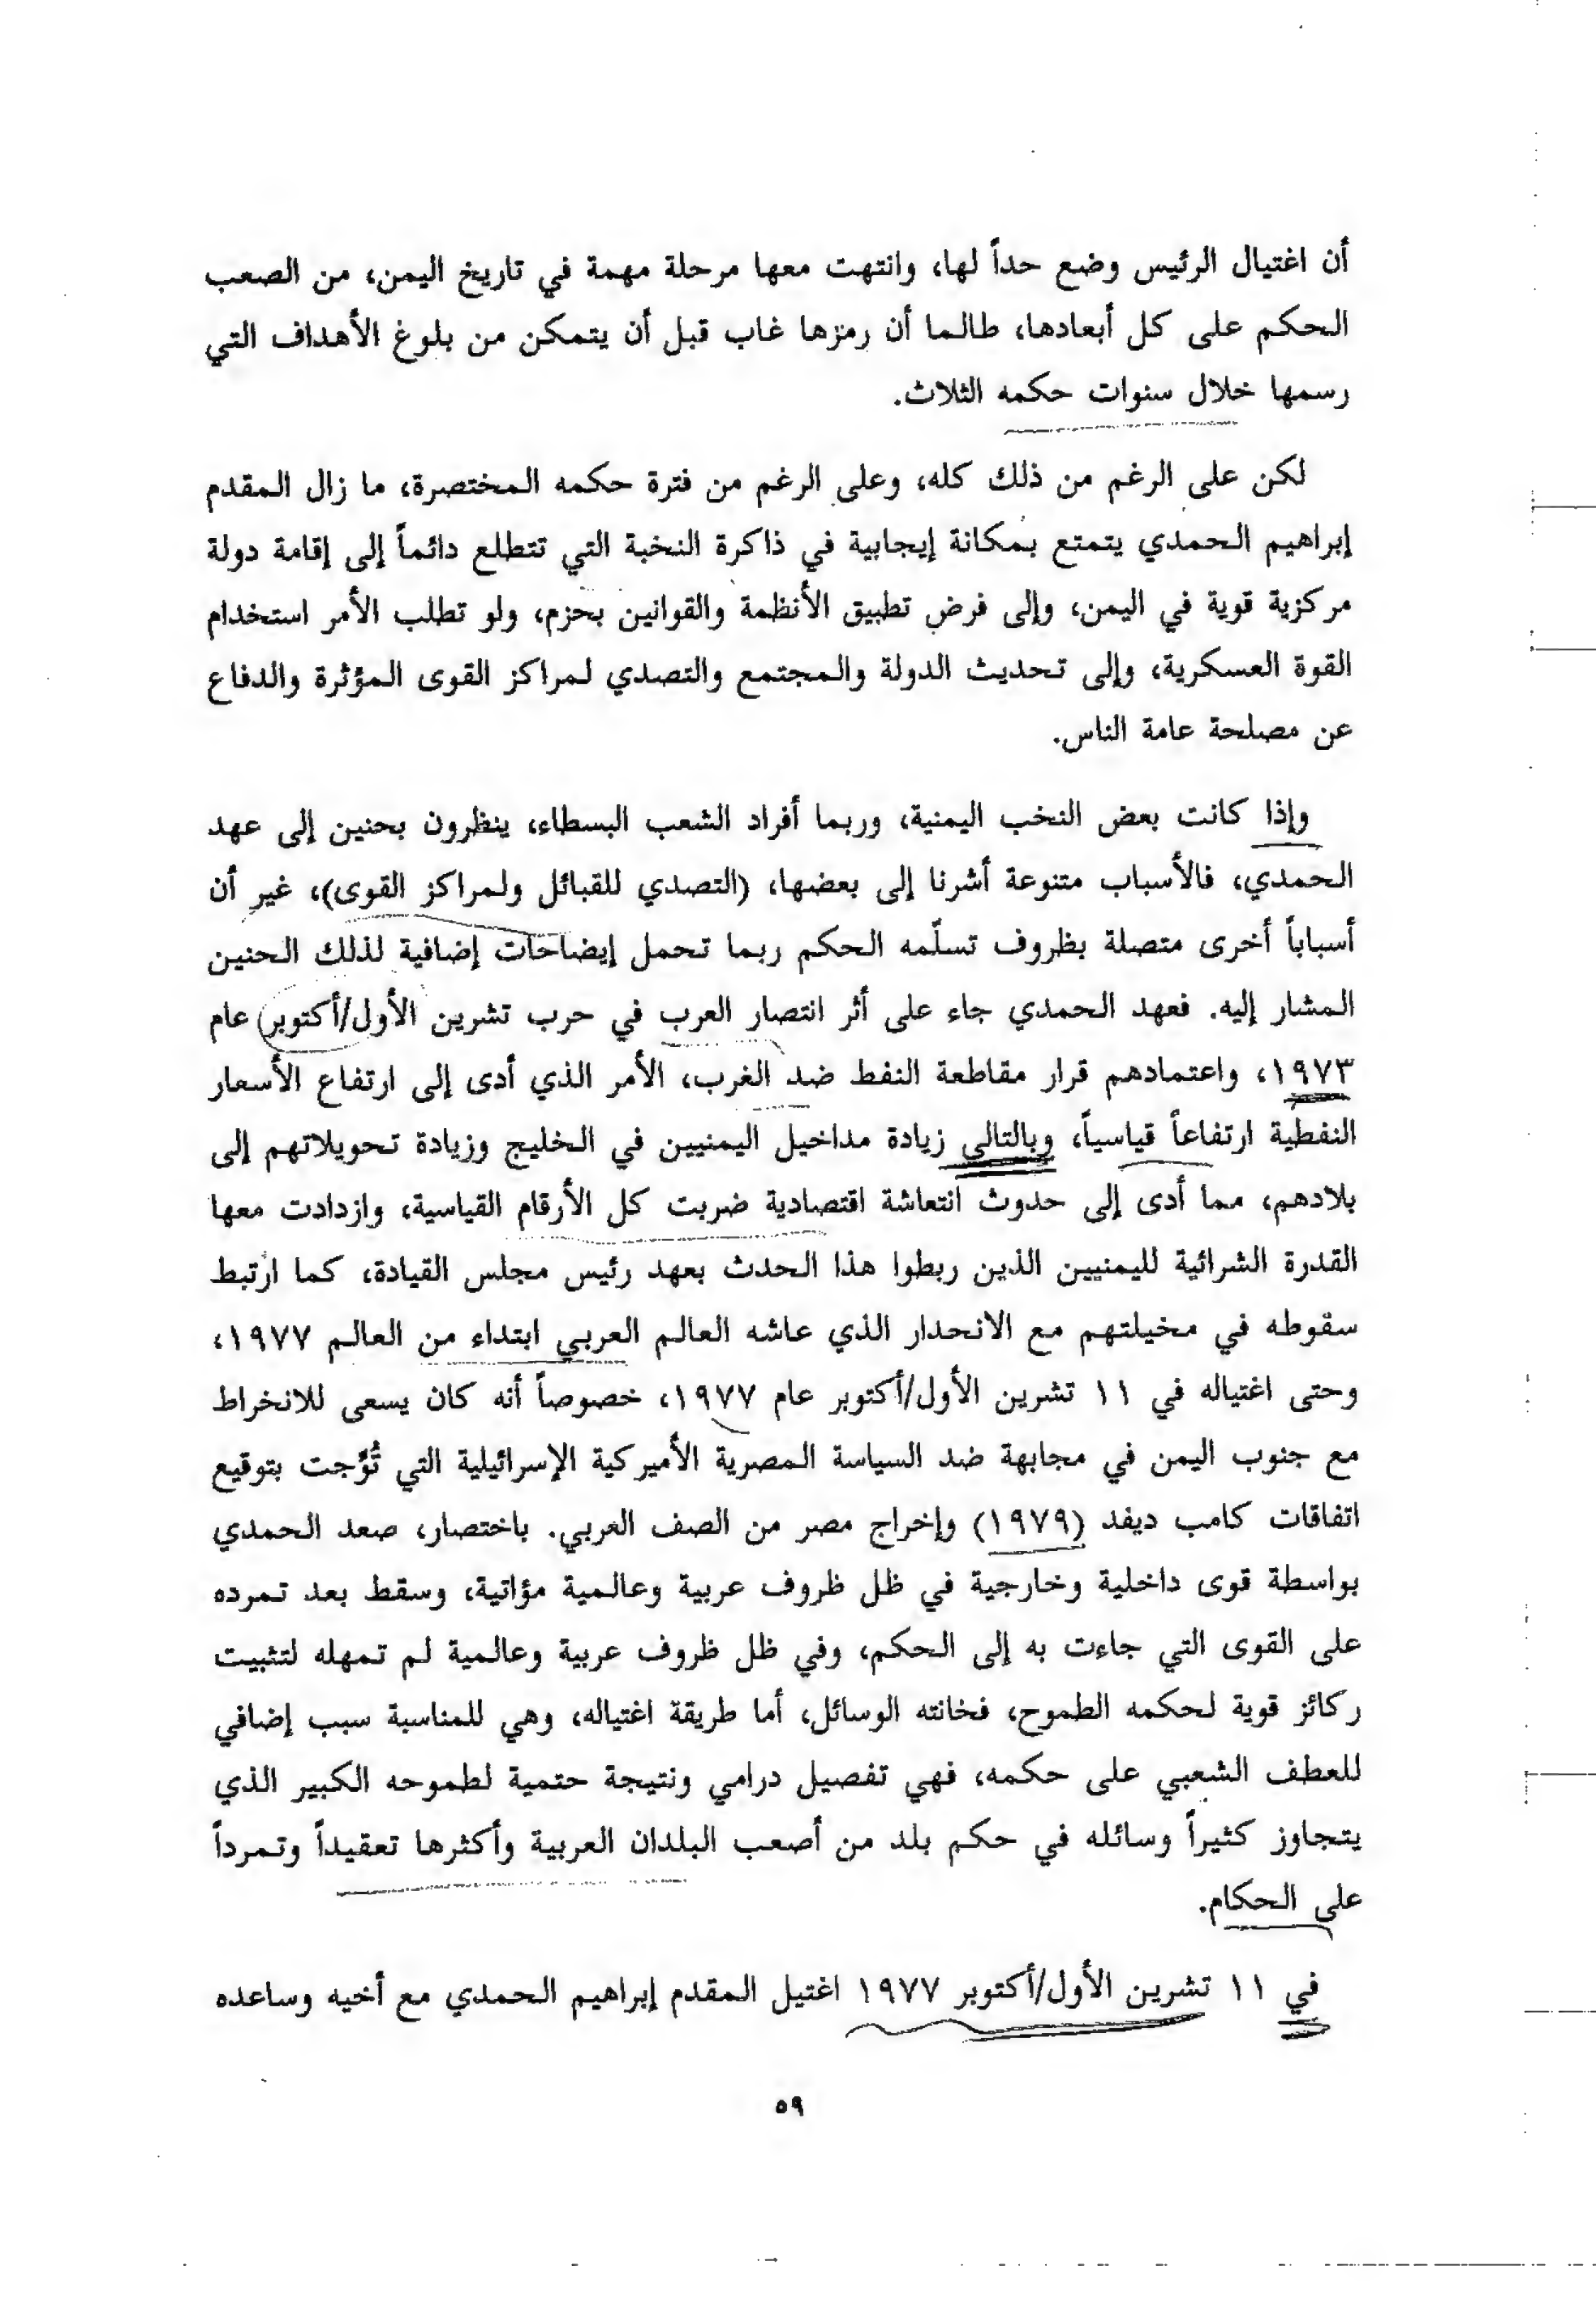 أن اغتيال الرئيس وضع حداً لها، وانتهت معها مرحلة مهمة في تاريخ اليمن، من الصعب
الحكم على كل أبعادها، طالما أن رمزها غاب قبل أن يتمكن من بلوغ الأهداف التي
رسمها خلال سنوات حكمه الثلاث.
لكن على الرغم من ذلك كله، وعلى الرغم من فترة حكمه المختصرة، ما زال المقدم
إبراهيم الحمدي يتمتع بمكانة إيجابية في ذاكرة النخبة التي تتطلع دائماً إلى إقامة دولة
مركزية قوية في اليمن، وإلى فرض تطبيق الأنظمة والقوانين بحزم، ولو تطلب الأمر استخدام
القوة العسكرية، وإلى تحديث الدولة والمجتمع والتصدي لمراكز القوى المؤثرة والدفاع
عن مصلحة عامة الناس.
وإذا كانت بعض النخب اليمنية، وربما أفراد الشعب البسطاء، ينظرون بحنين إلى عهد
الحمدي، فالأسباب متنوعة أشرنا إلى بعضها، (التصدي للقبائل ولمراكز القوى)، غير أن
أسباباً أخرى متصلة بظروف تسلّمه الحكم ربما تحمل إيضاحات إضافية لذلك الحنين
المشار إليه. فعهد الحمدي جاء على أثر انتصار العرب في حرب تشرين الأول/أكتوبر عام
١٩٧٣، واعتمادهم قرار مقاطعة النفط ضد الغرب، الأمر الذي أدى إلى ارتفاع الأسعار
النفطية ارتفاعاً قياسياً، وبالتالي زيادة مداخيل اليمنيين في الخليج وزيادة تحويلاتهم إلى
بلادهم، مما أدى إلى حدوث انتعاشة اقتصادية ضربت كل الأرقام القياسية، وازدادت معها
القدرة الشرائية لليمنيين الذين ربطوا هذا الحدث بعهد رئيس مجلس القيادة، كما ارتبط
سقوطه في مخيلتهم مع الانحدار الذي عاشه العالم العربي ابتداء من العالم ١٩٧٧،
وحتى اغتياله في ١١ تشرين الأول/أكتوبر عام ١٩٧٧، خصوصاً أنه كان يسعى للانخراط
مع جنوب اليمن في مجابهة ضد السياسة المصرية الأميركية الإسرائيلية التي تُوِّجت بتوقيع
اتفاقات كامب ديفد (١٩٧٩) وإخراج مصر من الصف العربي. باختصار، صعد الحمدي
بواسطة قوى داخلية وخارجية في ظل ظروف عربية وعالمية مؤاتية، وسقط بعد تمرده
على القوى التي جاءت به إلى الحكم، وفي ظل ظروف عربية وعالمية لم تمهله لتثبيت
ركائز قوية لحكمه الطموح، فخانته الوسائل، أما طريقة اغتياله، وهي للمناسبة سبب إضافي
للعطف الشعبي على حكمه، فهي تفصيل درامي ونتيجة حتمية لطموحه الكبير الذي
يتجاوز كثيراً وسائله في حكم بلد من أصعب البلدان العربية وأكثرها تعقيداً وتمرداً
على الحكام.
في ١١ تشرين الأول/أكتوبر ١٩٧٧ اغتيل المقدم إبراهيم الحمدي مع أخيه وساعده
٥٩